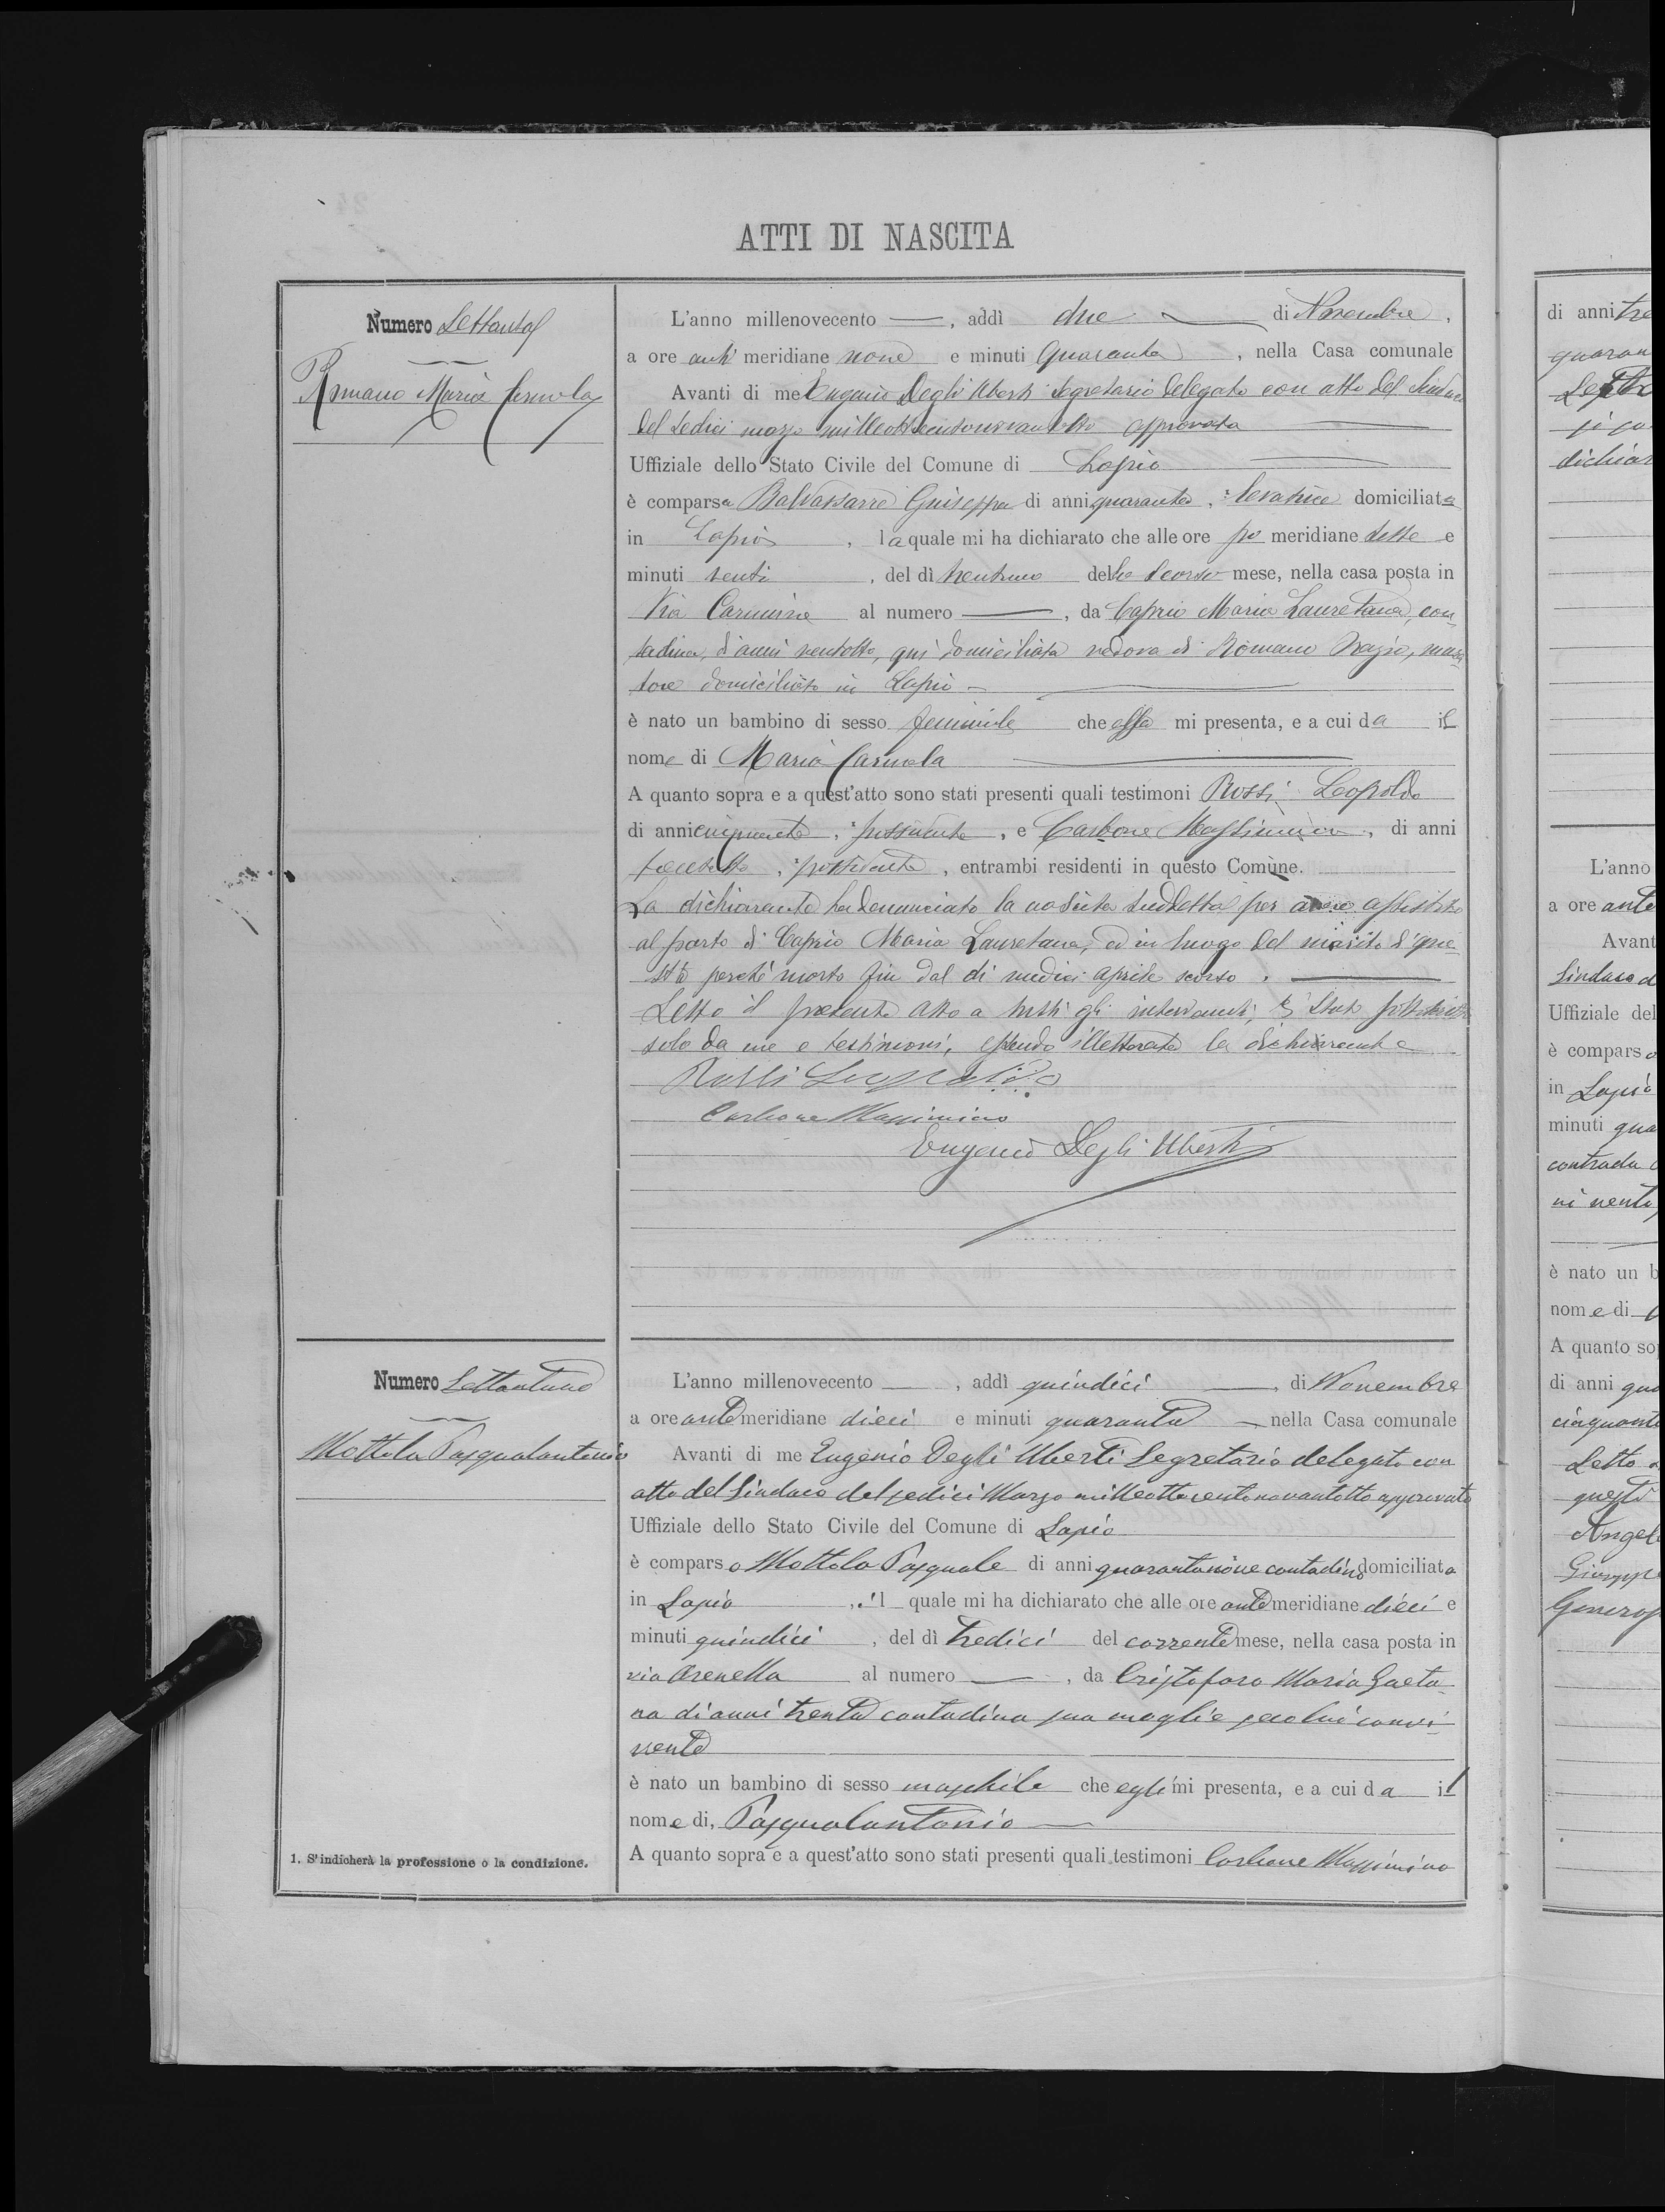 ATTI DI NASCITA
Numero Settanta
Romano Maria Carmela
L'anno millenovecento —, addì due di Novembre,
a ore anti meridiane nove e minuti quaranta, nella Casa comunale
Avanti di me Eugenio Degli Uberti Segretario delegato con atto del Sindaco
del sedici marzo milleottocentonovantotto approvato
Uffiziale dello Stato Civile del Comune di Lapio
è comparsa Baldassarre Giuseppa di anni quaranta, levatrice domiciliata
in Lapio, la quale mi ha dichiarato che alle ore po meridiane sette e
minuti venti, del dì trentuno dello scorso mese, nella casa posta in
Via Carmine al numero —, da Caprio Maria Lauretana, con-
tadina, di anni ventotto, qui domiciliata vedova di Romano Biagio, mura
tore domiciliato in Lapio —
è nato un bambino di sesso feminile che essa mi presenta, e a cui da il
nome di Maria Carmela
A quanto sopra e a quest'atto sono stati presenti quali testimoni Rossi Leopoldo
di anni cinquanta, possidente, e Carbone Massimino, di anni
trentotto, possidente, entrambi residenti in questo Comune.
La dichiarante ha denunciato la nascita suddetta per avere assistito
al parto di Caprio Maria Lauretana, ed in luogo del marito di que
sta perché morto fin dal dì undici aprile scorso.
Letto il presente atto a tutti gli intervenuti, è stato sottoscritto
solo da me e testimoni, essendo illetterata la dichiarante
Rossi Leopoldo
Carbone Massimino
Eugenio Degli Uberti
Numero Settantuno
Mottola Pasqualantonio
L'anno millenovecento —, addì quindici —, di Novembre
a ore ante meridiane dieci e minuti quaranta — nella Casa comunale
Avanti di me Eugenio Degli Uberti Segretario delegato con
atto del Sindaco del sedici Marzo milleottocentonovantotto approvato
Uffiziale dello Stato Civile del Comune di Lapio
è comparso Mottola Pasquale di anni quarantanove contadino domiciliato
in Lapio, il quale mi ha dichiarato che alle ore ante meridiane dieci e
minuti quindici, del dì tredici del corrente mese, nella casa posta in
via Arenella al numero —, da Cristofaro Maria Gaeta-
na di anni trenta contadina sua moglie seco lui convi-
vente
è nato un bambino di sesso maschile che egli mi presenta, e a cui da il
nome di, Pasqualantonio —
A quanto sopra e a quest'atto sono stati presenti quali testimoni Carbone Massimino
1. S'indicherà la professione o la condizione.
di anni tre
quaran
Letto
dichiar
L'anno
a ore ante
Avant
Sindaco d
Uffiziale del
è comparso
in Lapio
minuti qua
contrada
ni venti
è nato un b
nome di
A quanto so
di anni qua
cinquant
Letto
questi
Angel
Giuseppe
Generos